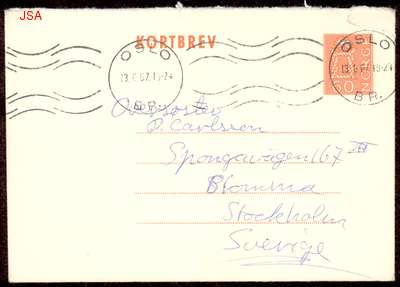 JSA
KORTBREV
OSLO
13.6.67.19-24
BR.
OSLO
13.6.67.19-24
BR.
P. Carlsson
Spongavägen 167
Blomma
Stockholm
Sverige